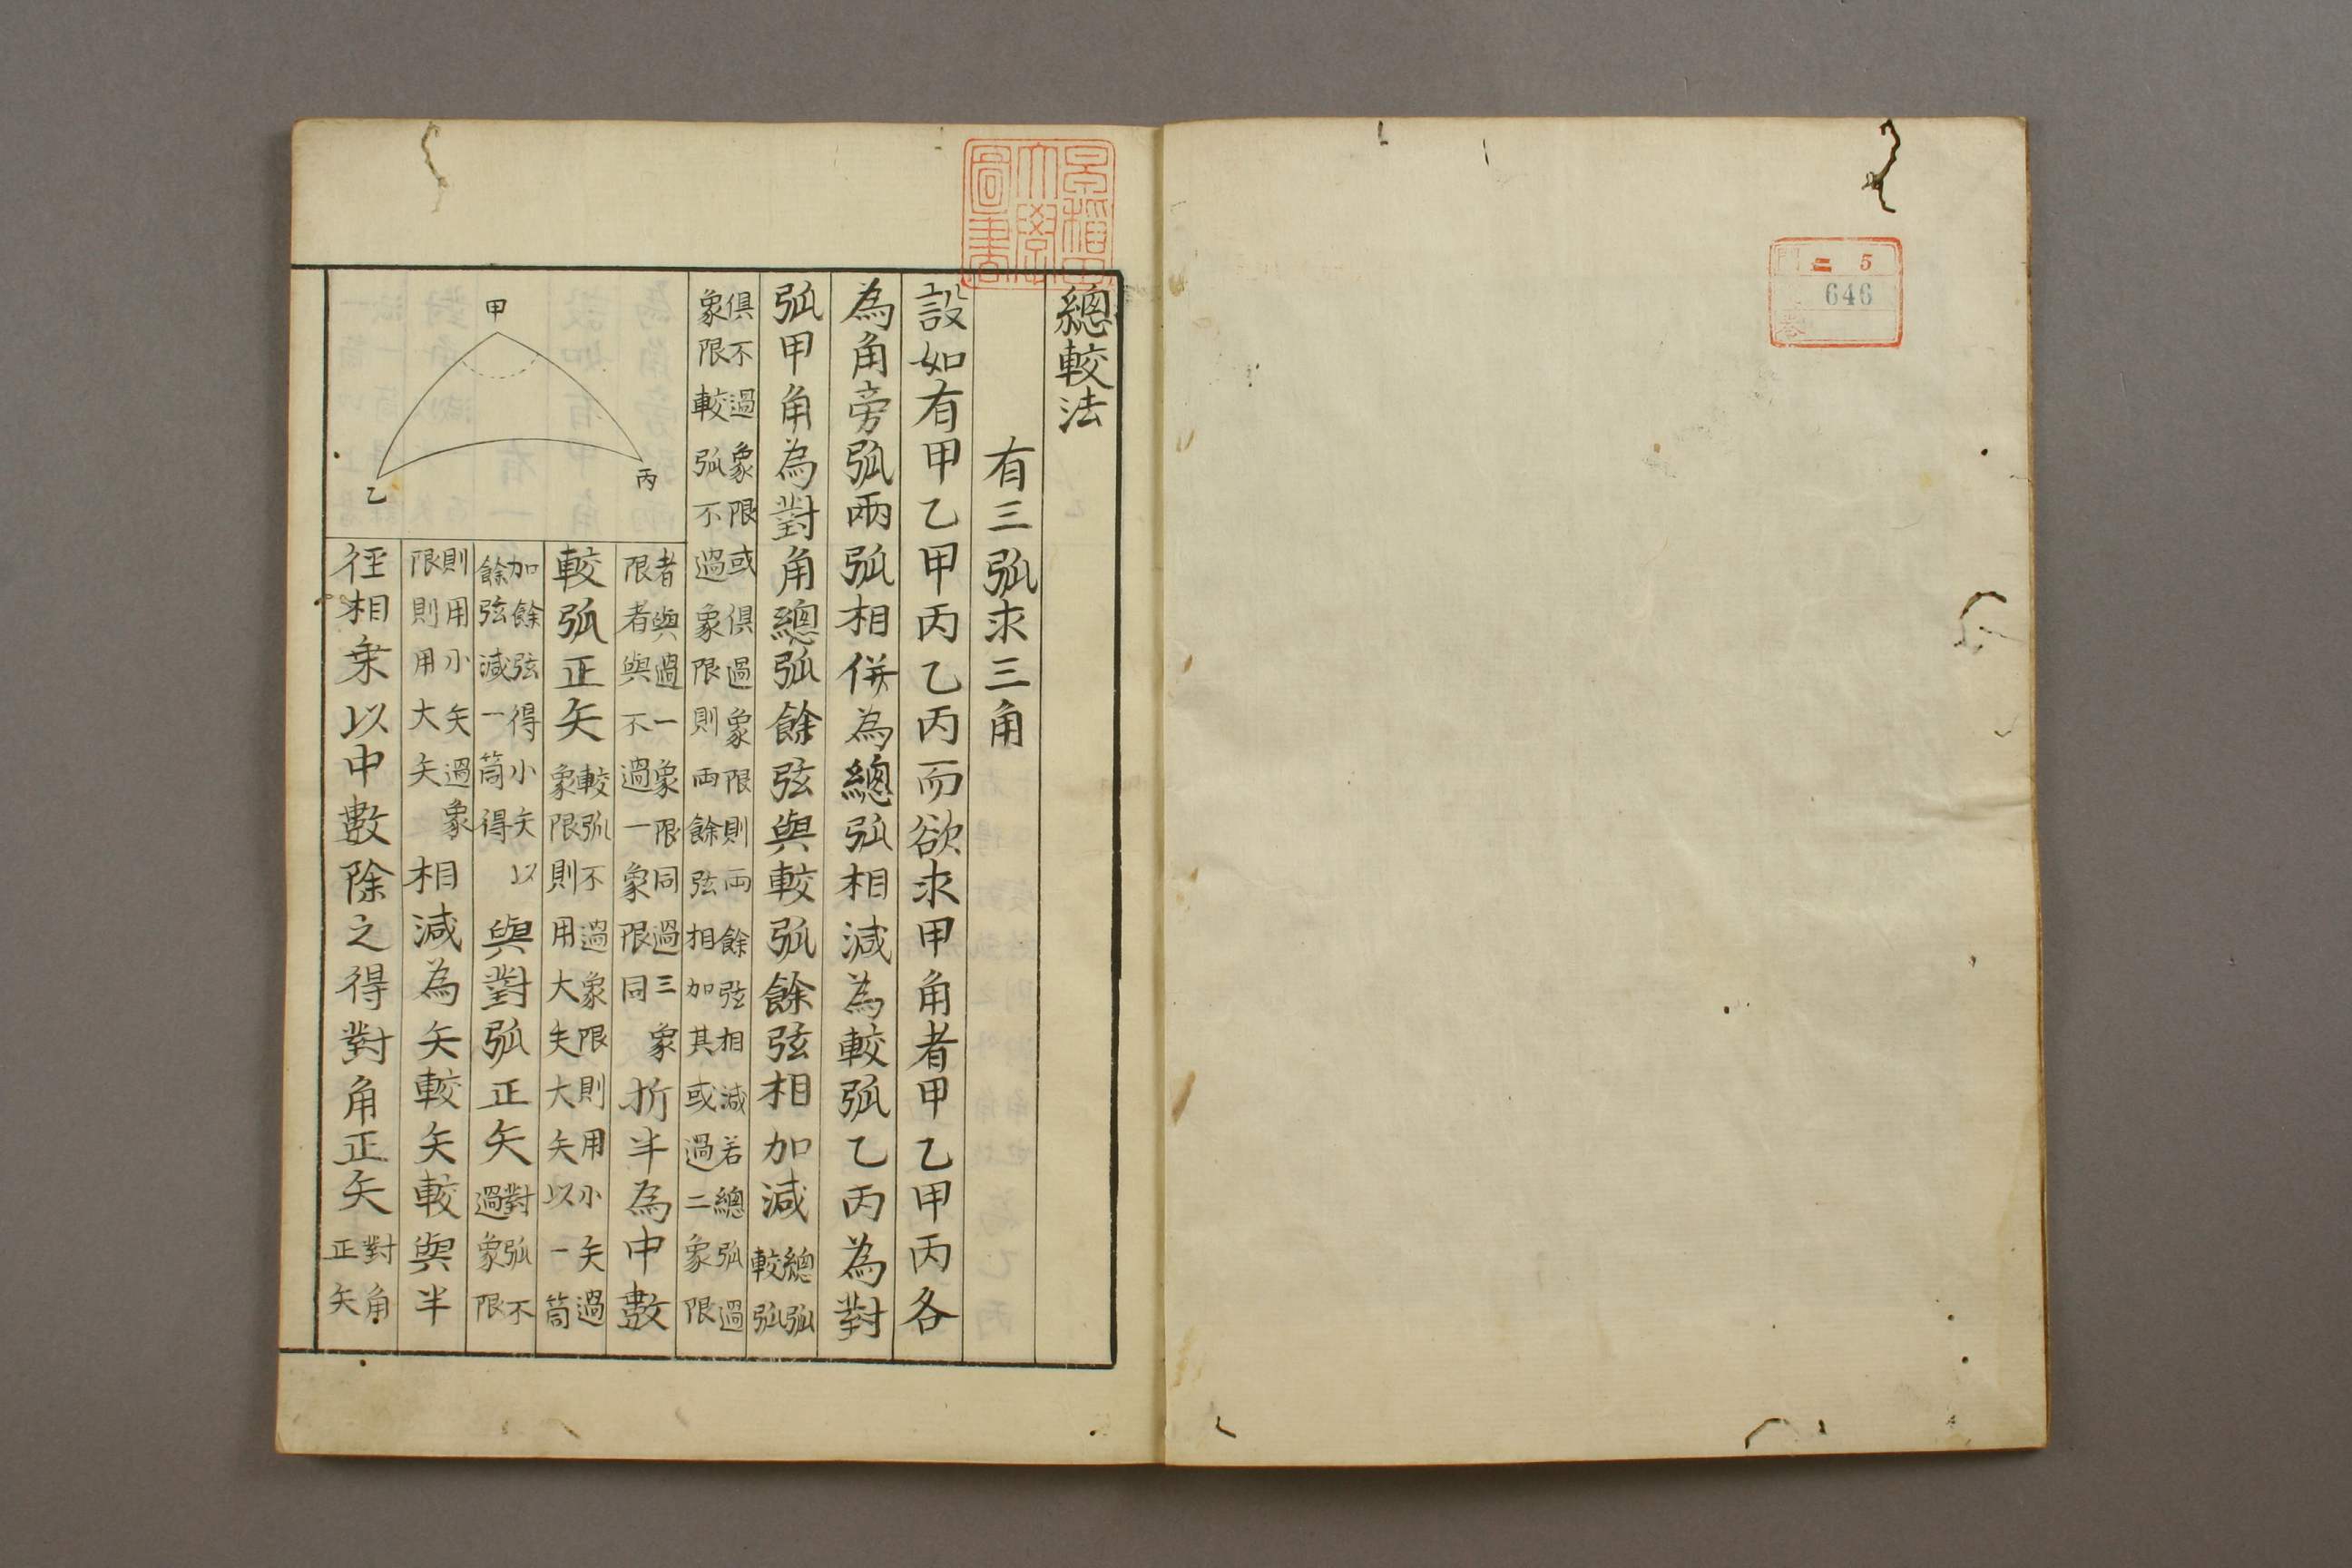 門 二 5
646
早稲田
大學
圖書
總較法
有三弧求三角
設如有甲乙甲丙乙丙而欲求甲角者甲乙甲丙各
為角旁弧兩弧相併為總弧相減為較弧乙丙為對
弧甲角為對角總弧餘弦與較弧餘弦相加減
總弧
較弧
俱不過象限或俱過象限則両餘弦相減若總弧過
象限較弧不過象限則両餘弦相加其或過二象限
甲
丙
乙
者與過一象限同過三象
限者與不過一象限同
折半為中數
較弧正矢
較弧不過象限則用小矢過
象限則用大失大矢以一筒
加餘弦得小矢以
餘弦減一筒得
與對弧正矢
對弧不
過象限
則用小矢過象
限則用大矢
相減為矢較矢較與半
徑相乗以中數除之得對角正矢
對角
正矢